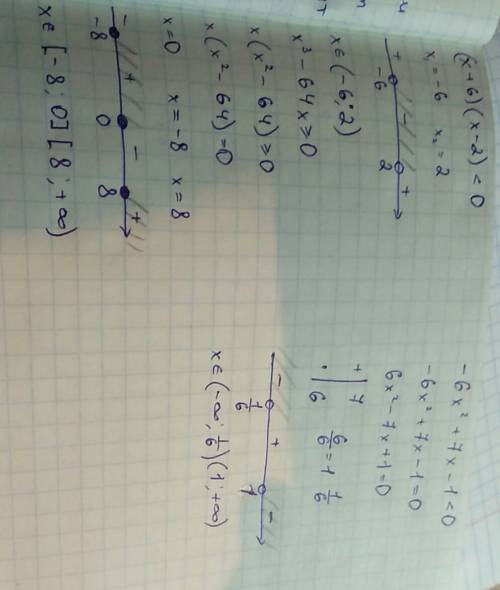 (x+6)(x-2)<0
x₁=-6 x₂=2
+ - +
-6 2
x∈(-6;2)
x³-64x≥0
x(x²-64)≥0
x(x²-64)=0
x=0 x=-8 x=8
- + - +
-8 0 8
x∈[-8;0][8;+∞)
-6x²+7x-1<0
-6x²+7x-1=0
6x²-7x+1=0
+ | 7
· | 6
6/6=1 1/6
- + -
1/6 1
x∈(-∞;1/6)(1;+∞)